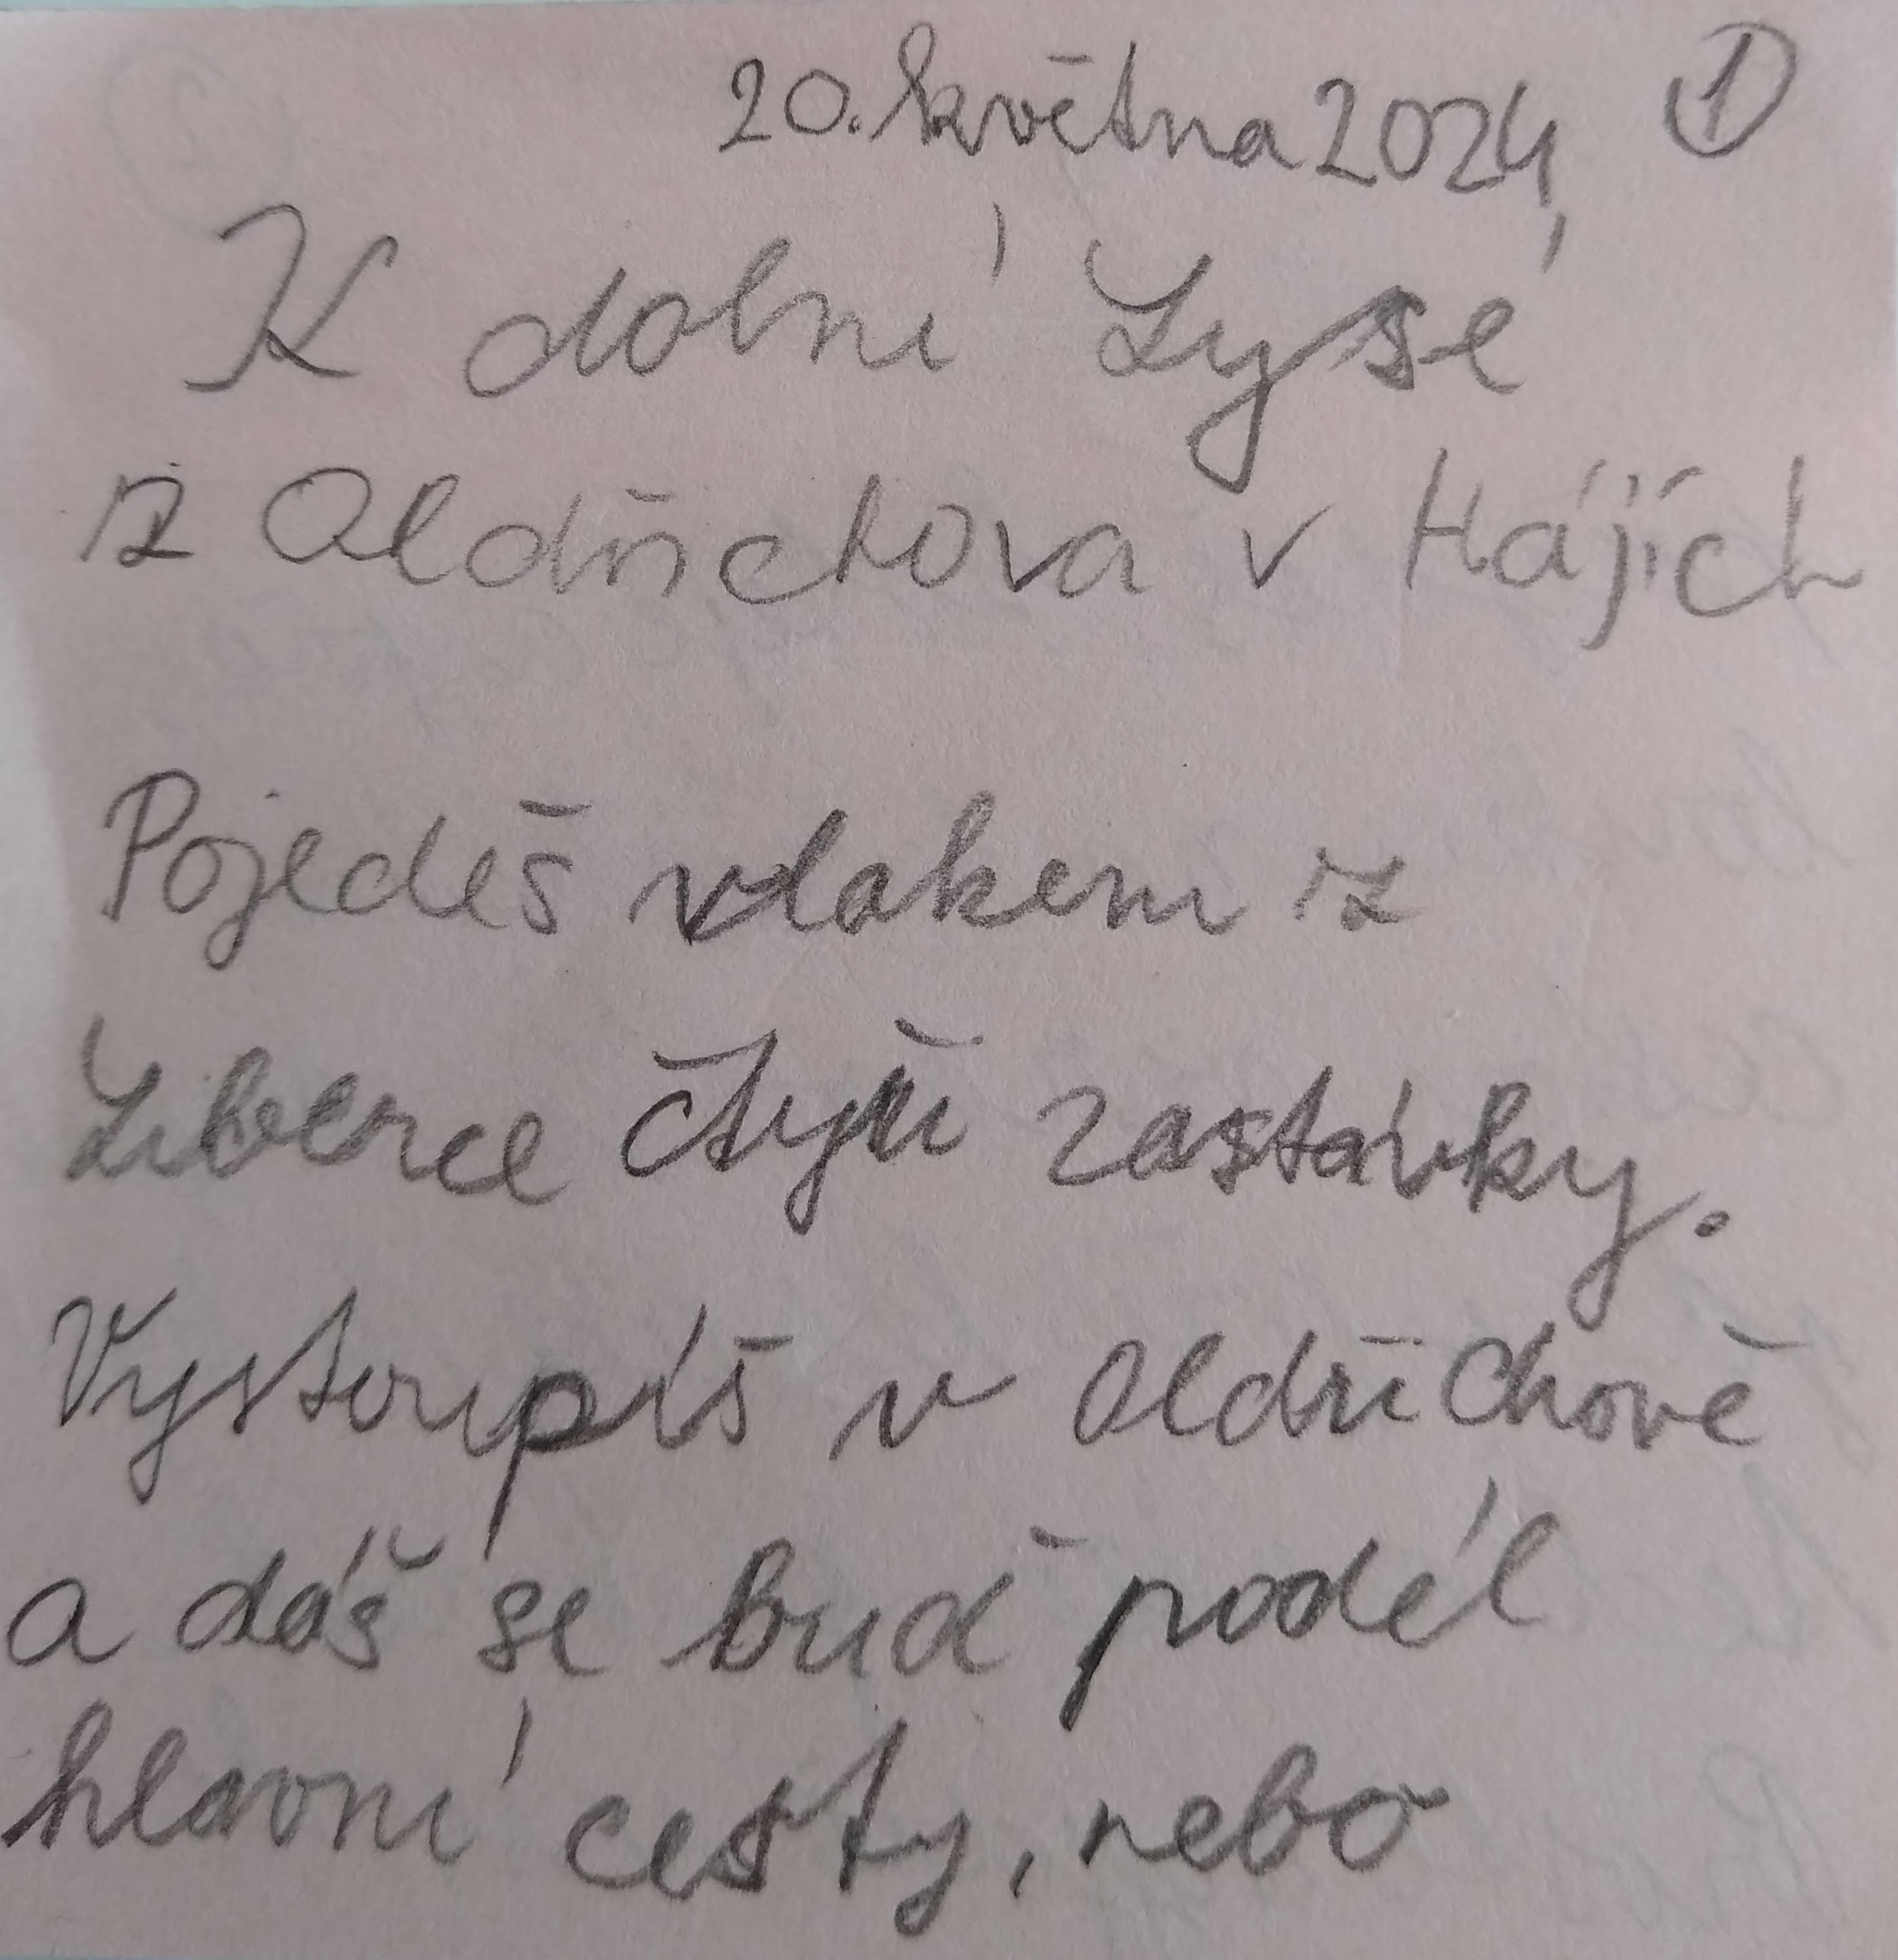 20. května 2024 ①
K dolní Lysé
z Oldřichova v Hájích
Pojedeš vlakem z
Liberce čtyři zastávky.
Vystoupíš v Oldřichově
a dáš se buď podél
hlavní cesty, nebo